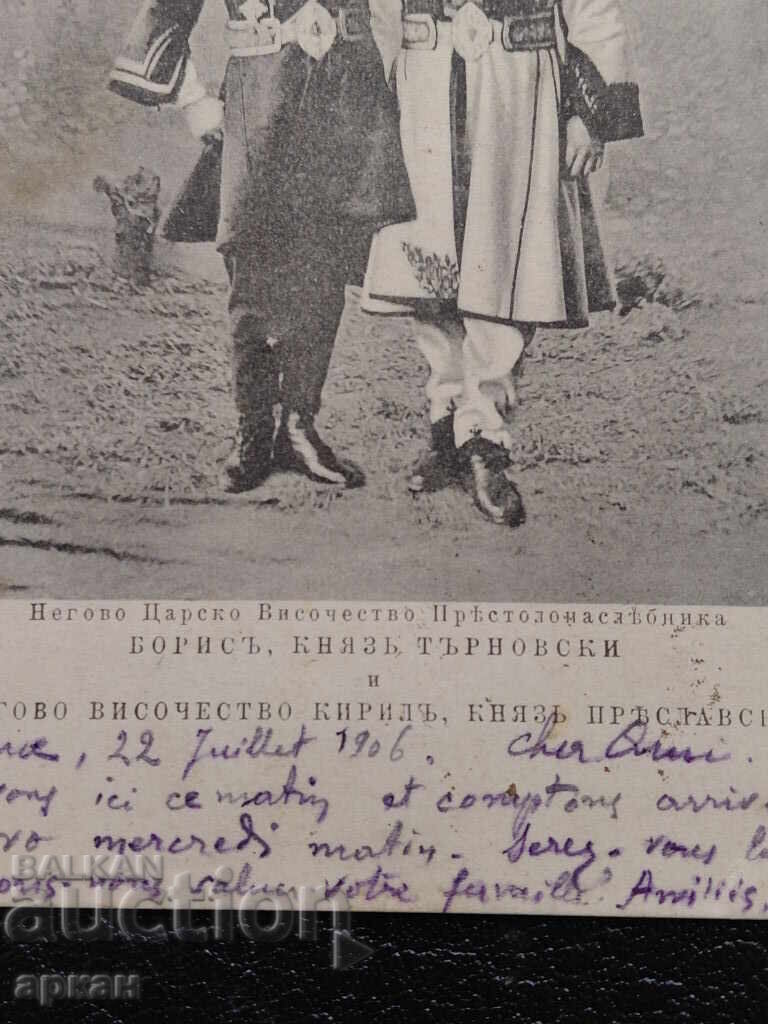 Негово Царско Височество Прѣстолонаслѣдника
БОРИСЪ, КНЯЗЬ ТЪРНОВСКИ
и
ГОВО ВИСОЧЕСТВО КИРИЛЪ, КНЯЗЬ ПРѢСЛАВС
, 22 Juillet 1906. cher Ami.
ici ce matin et comptons arriv
mercredi matin. Serez-vous
vous saluer votre famille! Amitiés,
BALKAN
auction
аркан